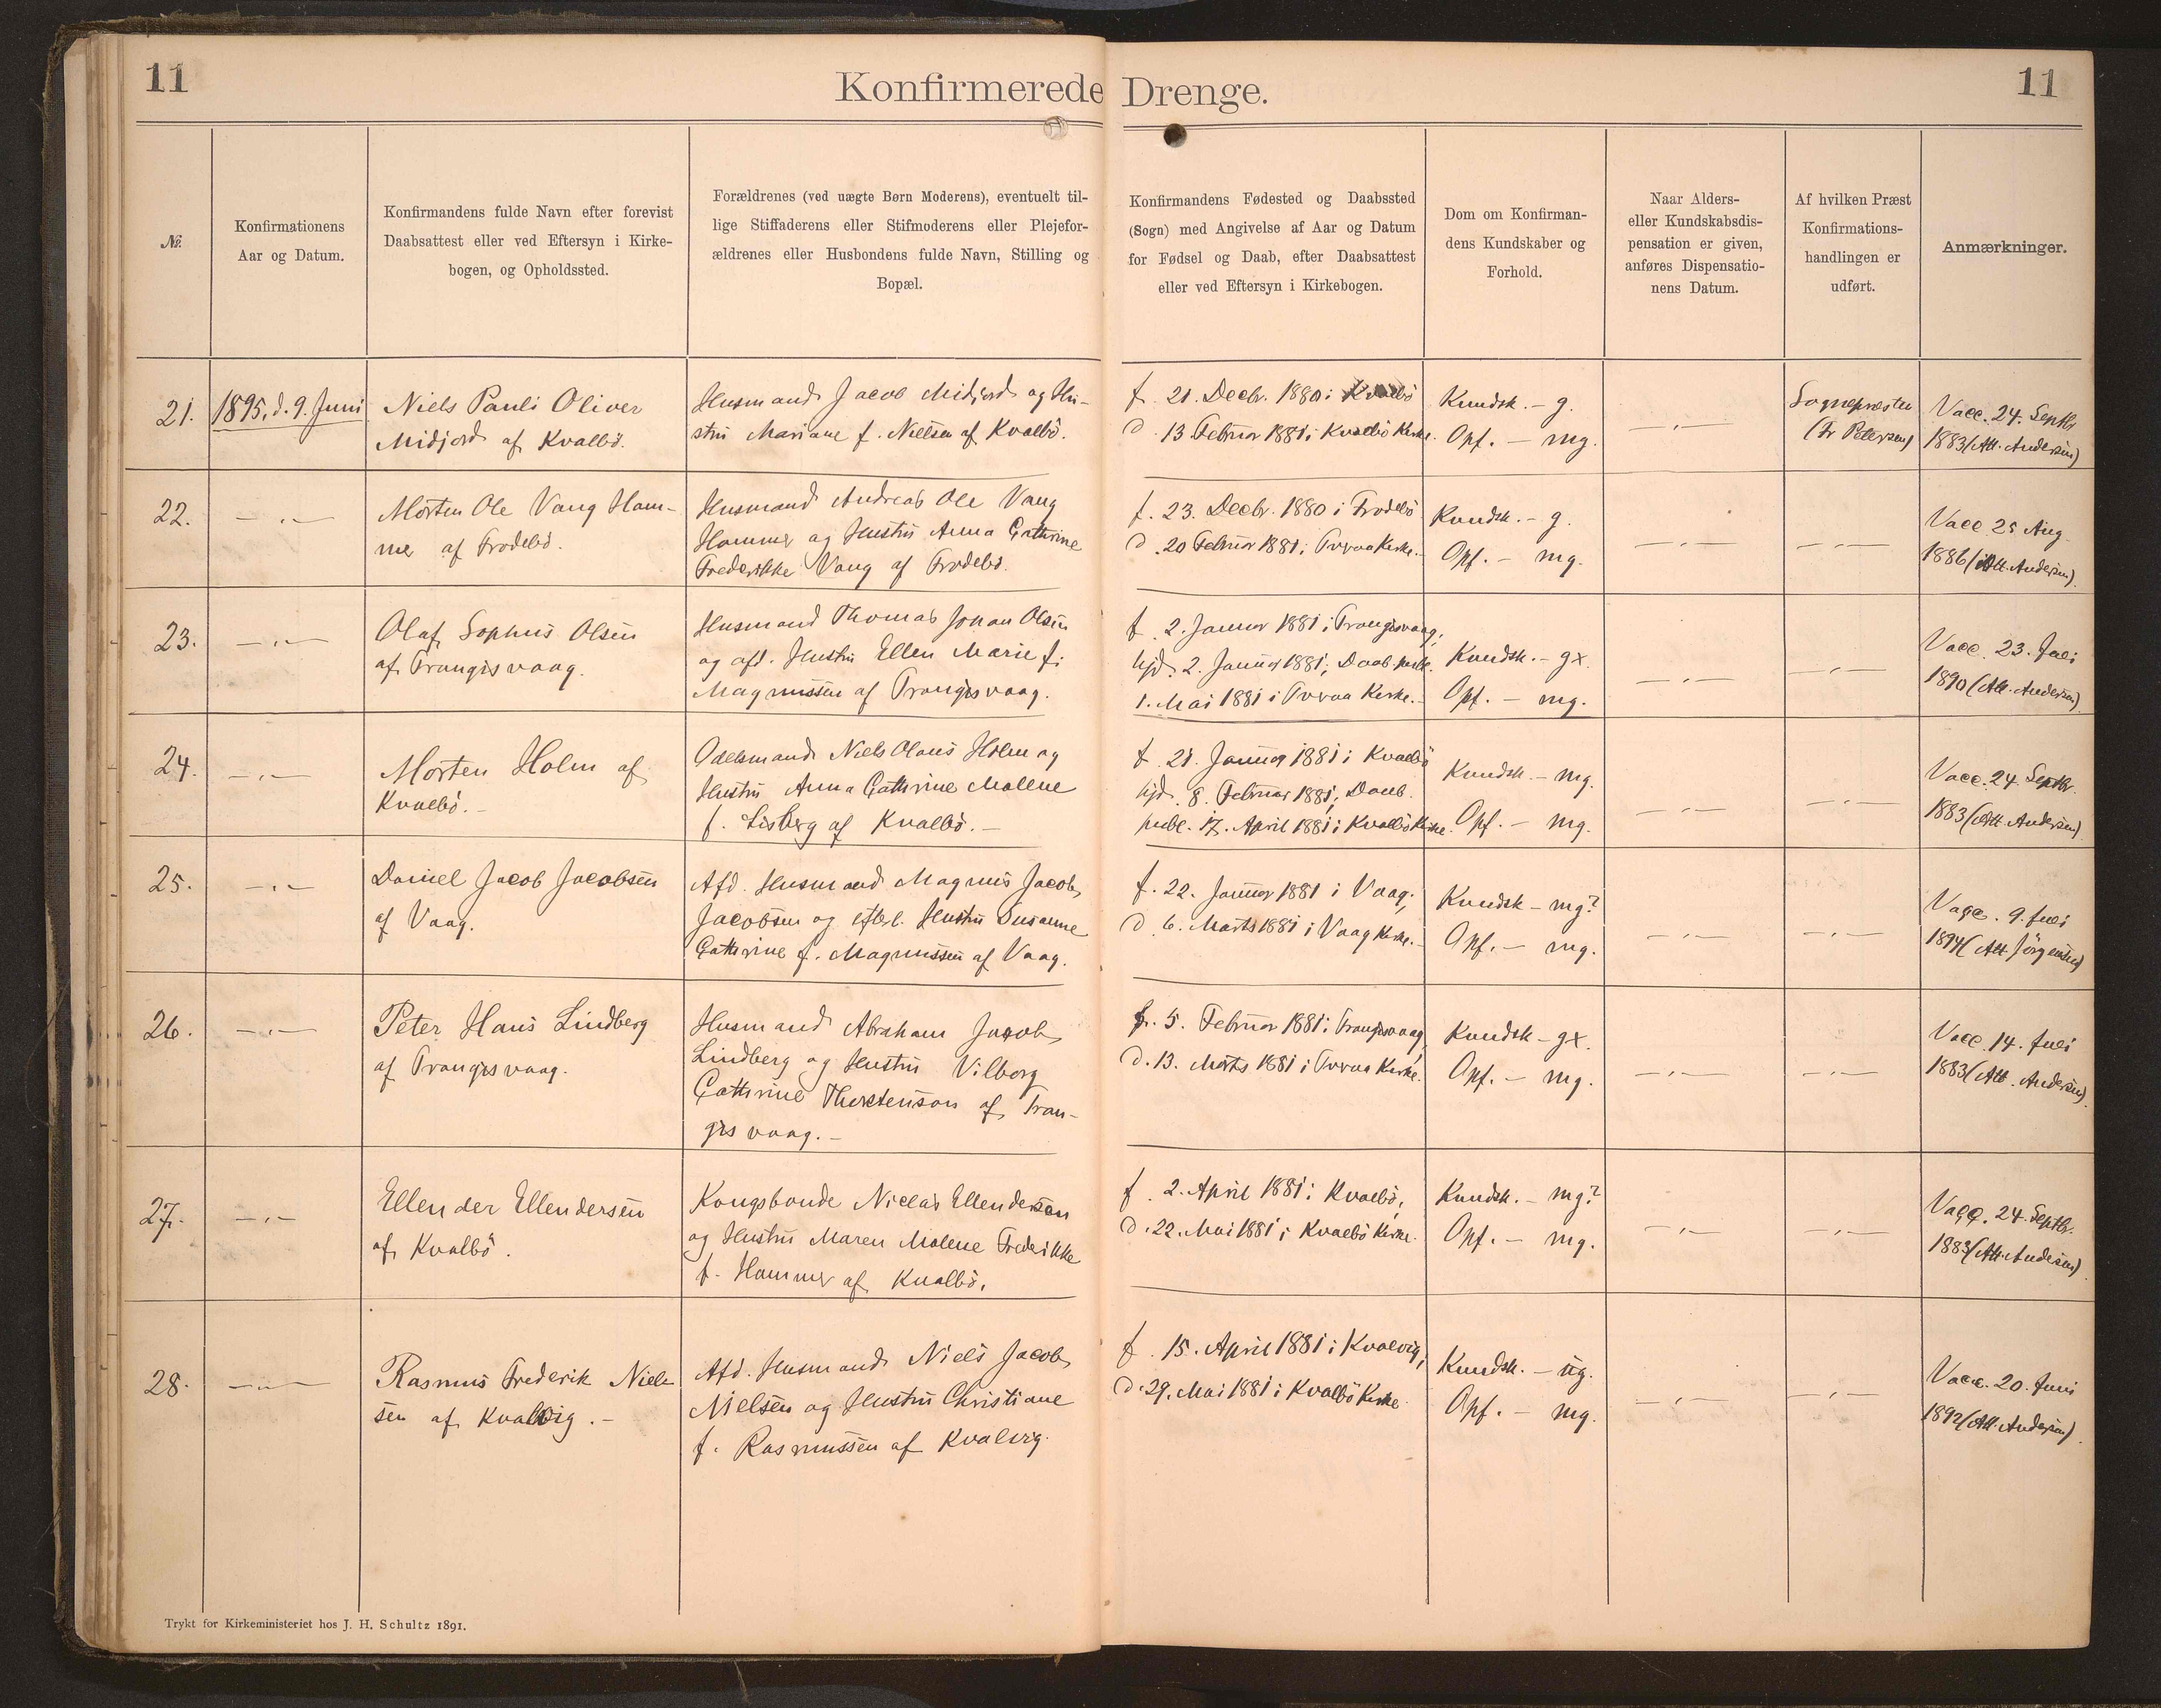 11
Konfirmerede Drenge.
11
№
Konfirmationens
Aar og Datum.
Konfirmandens fulde Navn efter forevist
Daabsattest eller ved Eftersyn i Kirke-
bogen, og Opholdssted.
Forældrenes (ved uægte Børn Moderens), eventuelt til-
lige Stiffaderens eller Stifmoderens eller Plejefor-
ældrenes eller Husbondens fulde Navn, Stilling og
Bopæl.
Konfirmandens Fødested og Daabssted
(Sogn) med Angivelse af Aar og Datum
for Fødsel og Daab, efter Daabsattest
eller ved Eftersyn i Kirkebogen.
Dom om Konfirman-
dens Kundskaber og
Forhold.
Naar Alders-
eller Kundskabsdis-
pensation er given,
anføres Dispensatio-
nens Datum.
Af hvilken Præst
Konfirmations-
handlingen er
udført.
Anmærkninger.
21.
1895, d. 9. Juni
Niels Pauli Oliver
Midjord af Kvalbö.
Husmand Jacob Midjord og Hu-
stru Mariane f. Nielsen af Kvalbö.
f. 21. Decbr. 1880 i Kvalbö
d. 13. Februar 1881 i Kvalbö Kirke.
Kundsk. - g.
Opf. - mg.
- " -
Sognepræsten
(Fr Petersen)
Vacc. 24. Septbr
1883 (Att. Andersen)
22.
- " -
Morten Ole Vang Ham-
mer af Frodebö.
Husmand Andreas Ole Vang
Hammer og Hustru Anna Cathrine
Frederikke Vang af Frodebö.
f. 23. Decbr. 1880 i Frodebö
d. 20 Februar 1881 i Tvraa Kirke.
Kundsk. - g.
Opf. - mg.
- " -
- " -
Vacc 25 Aug.
1886 (Att. Andersen).
23.
- " -
Olaf Sophus Olsen
af Trangisvaag.
Husmand Thomas Johan Olsen
og afd. Hustru Ellen Marie f.
Magnussen af Trangisvaag.
f. 2. Januar 1881 i Trangisvaag,
hjd. 2. Januar 1881, Daab publ.
1. Mai 1881 i Tvraa Kirke.
Kundsk. - gx.
Opf. - mg.
- " -
- " -
Vacc. 23. Juli
1890 (Att. Andersen)
24.
- " -
Morten Holm af
Kvalbö.-
Odelsmand Niels Olaus Holm og
Hustru Anna Cathrine Malene
f. Lisberg af Kvalbö.-
f. 21. Januar 1881 i Kvalbö
hjd. 8. Februar 1881, Daab
publ. 17. April 1881 i Kvalbö Kirke.
Kundsk. - mg.
Opf. - mg.
- " -
- " -
Vacc. 24. Septbr.
1883 (Att. Andersen)
25.
- " -
Daniel Jacob Jacobsen
af Vaag.
Afd. Husmand Magnus Jacob
Jacobsen og efterl. Hustru Susanne
Cathrine f. Magnussen af Vaag.
f. 22. Januar 1881 i Vaag,
d. 6. Marts 1881 i Vaag Kirke.-
Kundsk - mg?
Opf. - mg.
- " -
- " -
Vacc. 9. Juli
1894 (Att Jörgensen)
26.
- " -
Peter Hans Lindberg
af Trangisvaag.
Husmand Abraham Jacob
Lindberg og Hustru Vilborg
Cathrine Thorstenson af Tran-
gisvaag.-
f. 5. Februar 1881 i Trangisvaag,
d. 13. Marts 1881 i Tvraa Kirke.
Kundsk - gx.
Opf. - mg.
- " -
- " -
Vacc. 14. Juli
1883 (Att. Andersen).
27.
- " -
Ellender Ellendersen
af Kvalbö.
Kongsbonde Niclas Ellendersen
og Hustru Maren Malene Frederikke
f. Hammer af Kvalbö.
f. 2. April 1881 i Kvalbö,
d. 22. Mai 1881 i Kvalbö Kirke.
Kundsk. - mg?
Opf. - mg.
- " -
- " -
Vacc. 24. Septbr.
1883 (Att. Andersen)
28.
- " -
Rasmus Frederik Niel-
sen af Kvalvig.-
Afd. Husmand Niels Jacob
Nielsen og Hustru Christiane
f. Rasmussen af Kvalvig.
f. 15. April 1881 i Kvalvig,
d. 29. Mai 1881 i Kvalbö Kirke.
Kundsk. - ug.
Opf. - mg.
- " -
- " -
Vacc. 20. Juni
1892 (Att. Andersen).
Trykt for Kirkeministeriet hos J. H. Schultz 1891.